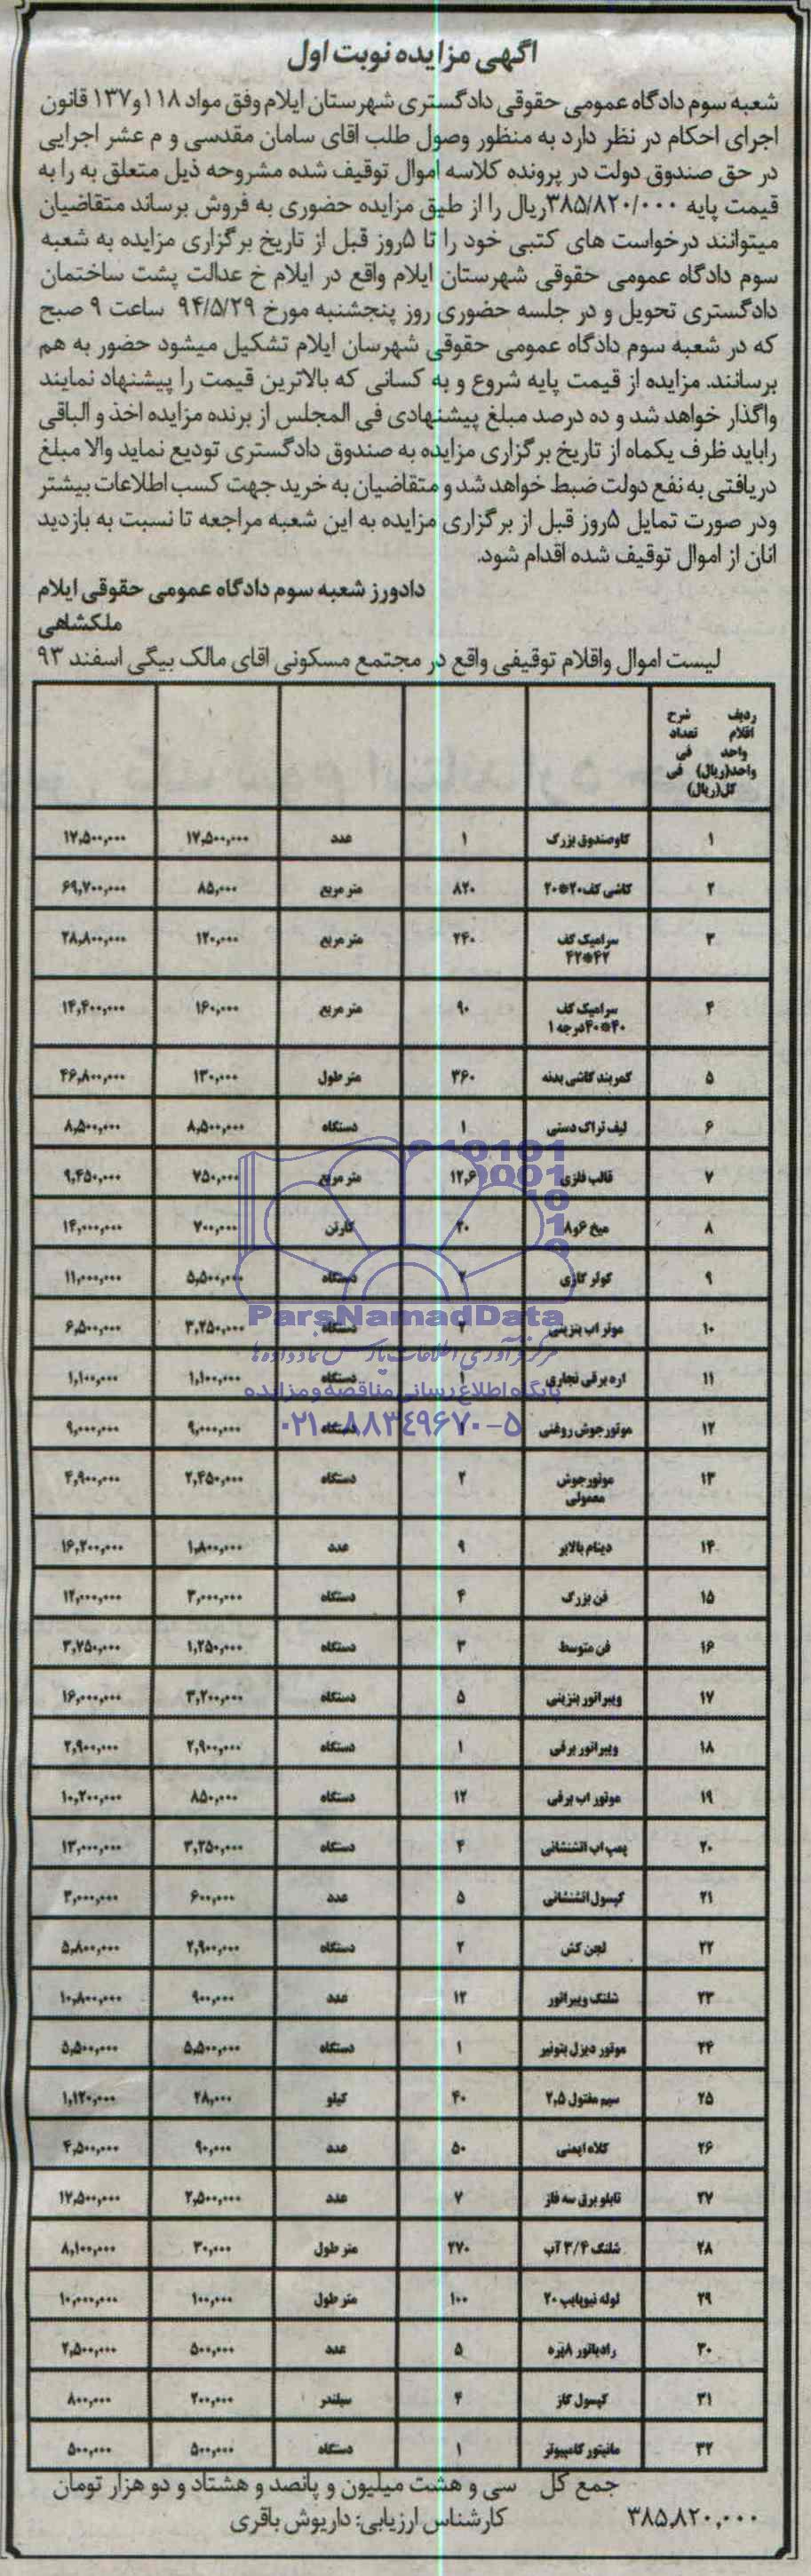 آگهی مزایده نوبت اول
شعبه سوم دادگاه عمومی حقوقی دادگستری شهرستان ایلام وفق مواد ۱۱۸و۱۳۷ قانون
اجرای احکام در نظر دارد به منظور وصول طلب اقای سامان مقدسی و م عشر اجرایی
در حق صندوق دولت در پرونده کلاسه اموال توقیف شده مشروحه ذیل متعلق به را به
قیمت پایه ۳۸۵/۸۲۰/۰۰۰ریال را از طیق مزایده حضوری به فروش برساند متقاضیان
میتوانند درخواست های کتبی خود را تا ۵روز قبل از تاریخ برگزاری مزایده به شعبه
سوم دادگاه عمومی حقوقی شهرستان ایلام واقع در ایلام خ عدالت پشت ساختمان
دادگستری تحویل و در جلسه حضوری روز پنجشنبه مورخ ۹۴/۵/۲۹ ساعت ۹ صبح
که در شعبه سوم دادگاه عمومی حقوقی شهرسان ایلام تشکیل میشود حضور به هم
برسانند. مزایده از قیمت پایه شروع و به کسانی که بالاترین قیمت را پیشنهاد نمایند
واگذار خواهد شد و ده درصد مبلغ پیشنهادی فی المجلس از برنده مزایده اخذ و الباقی
راباید ظرف یکماه از تاریخ برگزاری مزایده به صندوق دادگستری تودیع نماید والا مبلغ
دریافتی به نفع دولت ضبط خواهد شد و متقاضیان به خرید جهت کسب اطلاعات بیشتر
ودر صورت تمایل ۵روز قبل از برگزاری مزایده به این شعبه مراجعه تا نسبت به بازدید
انان از اموال توقیف شده اقدام شود.
دادورز شعبه سوم دادگاه عمومی حقوقی ایلام
ملکشاهی
لیست اموال واقلام توقیفی واقع در مجتمع مسکونی اقای مالک بیگی اسفند ۹۳
ردیف شرح
اقلام تعداد
واحد فی
واحد(ریال) فی
کل(ریال)
۱ گاوصندوق بزرگ ۱ عدد ۱۷,۵۰۰,۰۰۰ ۱۷,۵۰۰,۰۰۰
۲ کاشی کف۲۰*۲۰ ۸۲۰ متر مربع ۸۵,۰۰۰ ۶۹,۷۰۰,۰۰۰
۳ سرامیک کف ۴۲*۴۲ ۲۴۰ متر مربع ۱۲۰,۰۰۰ ۲۸,۸۰۰,۰۰۰
۴ سرامیک کف ۴۰*۴۰درجه ۱ ۹۰ متر مربع ۱۶۰,۰۰۰ ۱۴,۴۰۰,۰۰۰
۵ کمربند کاشی بدنه ۳۶۰ متر طول ۱۳۰,۰۰۰ ۴۶,۸۰۰,۰۰۰
۶ لیف تراک دستی ۱ دستگاه ۸,۵۰۰,۰۰۰ ۸,۵۰۰,۰۰۰
۷ قالب فلزی ۱۲,۶ متر مربع ۷۵۰,۰۰۰ ۹,۴۵۰,۰۰۰
۸ میخ ۶و۸ ۲۰ کارتن ۷۰۰,۰۰۰ ۱۴,۰۰۰,۰۰۰
۹ کولر گازی ۲ دستگاه ۵,۵۰۰,۰۰۰ ۱۱,۰۰۰,۰۰۰
۱۰ موتر اب بنزینی ۲ دستگاه ۳,۲۵۰,۰۰۰ ۶,۵۰۰,۰۰۰
۱۱ اره برقی نجاری ۱ دستگاه ۱,۱۰۰,۰۰۰ ۱,۱۰۰,۰۰۰
۱۲ موتورجوش روغنی ۱ دستگاه ۹,۰۰۰,۰۰۰ ۹,۰۰۰,۰۰۰
۱۳ موتورجوش معمولی ۲ دستگاه ۲,۴۵۰,۰۰۰ ۴,۹۰۰,۰۰۰
۱۴ دینام بالابر ۹ عدد ۱,۸۰۰,۰۰۰ ۱۶,۲۰۰,۰۰۰
۱۵ فن بزرگ ۴ دستگاه ۳,۰۰۰,۰۰۰ ۱۲,۰۰۰,۰۰۰
۱۶ فن متوسط ۳ دستگاه ۱,۲۵۰,۰۰۰ ۳,۷۵۰,۰۰۰
۱۷ ویبراتور بنزینی ۵ دستگاه ۳,۲۰۰,۰۰۰ ۱۶,۰۰۰,۰۰۰
۱۸ ویبراتور برقی ۱ دستگاه ۲,۹۰۰,۰۰۰ ۲,۹۰۰,۰۰۰
۱۹ موتور اب برقی ۱۲ دستگاه ۸۵۰,۰۰۰ ۱۰,۲۰۰,۰۰۰
۲۰ پمپ اب اتشنشانی ۴ دستگاه ۳,۲۵۰,۰۰۰ ۱۳,۰۰۰,۰۰۰
۲۱ کپسول اتشنشانی ۵ عدد ۶۰۰,۰۰۰ ۳,۰۰۰,۰۰۰
۲۲ لجن کش ۲ دستگاه ۲,۹۰۰,۰۰۰ ۵,۸۰۰,۰۰۰
۲۳ شلنگ ویبراتور ۱۲ عدد ۹۰۰,۰۰۰ ۱۰,۸۰۰,۰۰۰
۲۴ موتور دیزل بتونیر ۱ دستگاه ۵,۵۰۰,۰۰۰ ۵,۵۰۰,۰۰۰
۲۵ سیم مفتول ۲,۵ ۴۰ کیلو ۲۸,۰۰۰ ۱,۱۲۰,۰۰۰
۲۶ کلاه ایمنی ۵۰ عدد ۹۰,۰۰۰ ۴,۵۰۰,۰۰۰
۲۷ تابلو برق سه فاز ۷ عدد ۲,۵۰۰,۰۰۰ ۱۷,۵۰۰,۰۰۰
۲۸ شلنگ ۳/۴ آب ۲۷۰ متر طول ۳۰,۰۰۰ ۸,۱۰۰,۰۰۰
۲۹ لوله نیوپایپ ۲۰ ۱۰۰ متر طول ۱۰۰,۰۰۰ ۱۰,۰۰۰,۰۰۰
۳۰ رادیاتور ۸پره ۵ عدد ۵۰۰,۰۰۰ ۲,۵۰۰,۰۰۰
۳۱ کپسول گاز ۴ سیلندر ۲۰۰,۰۰۰ ۸۰۰,۰۰۰
۳۲ مانیتور کامپیوتر ۱ دستگاه ۵۰۰,۰۰۰ ۵۰۰,۰۰۰
جمع کل سی و هشت میلیون و پانصد و هشتاد و دو هزار تومان
۳۸۵,۸۲۰,۰۰۰ کارشناس ارزیابی: داریوش باقری
ParsNamadData
مرکز فرآوری اطلاعات پارس نماد داده ها
پایگاه اطلاع رسانی مناقصه و مزایده
۰۲۱-۸۸۳۴۹۶۷۰-۵